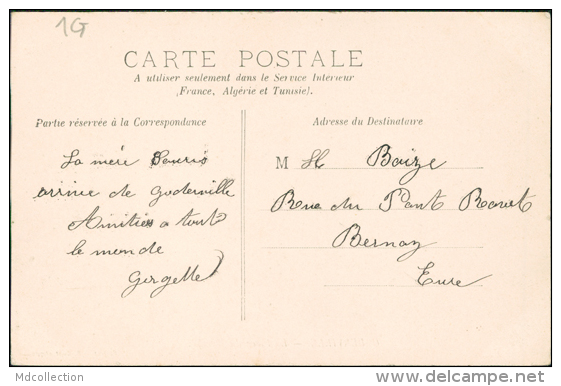 1G
CARTE POSTALE
A utiliser seulement dans le Service Intérieur
(France, Algérie et Tunisie).
Partie réservée à la Correspondance
Adresse du Destinataire
La mère Souris
arrive de goderville
Amitiés a tout
le monde
M Baize
Rue du Pont
Bernay
Eure
Mdcollection
delcampe.net